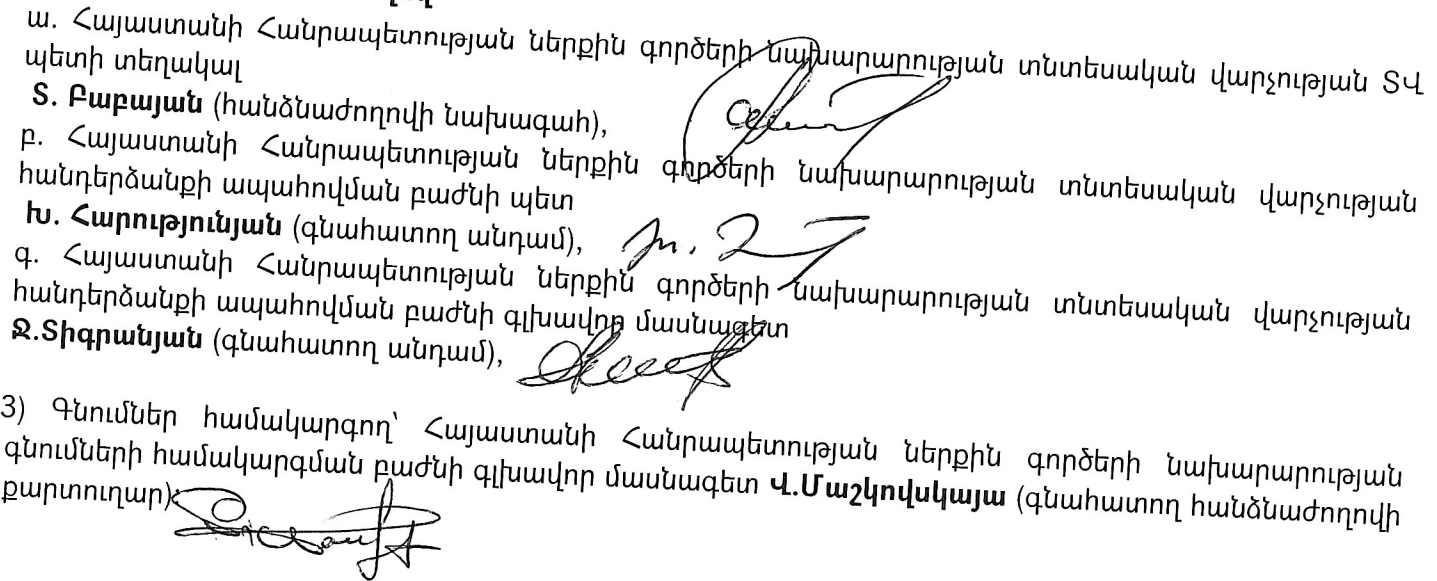 ա. Հայաստանի Հանրապետության ներքին գործերի նախարարության տնտեսական վարչության ՏՎ
պետի տեղակալ
Տ. Բաբայան (հանձնաժողովի նախագահ),
բ. Հայաստանի Հանրապետության ներքին գործերի նախարարության տնտեսական վարչության
հանդերձանքի ապահովման բաժնի պետ
Խ. Հարությունյան (գնահատող անդամ),
գ. Հայաստանի Հանրապետության ներքին գործերի նախարարության տնտեսական վարչության
հանդերձանքի ապահովման բաժնի գլխավոր մասնագետ
Ջ.Տիգրանյան (գնահատող անդամ),
3) Գնումներ համակարգող՝ Հայաստանի Հանրապետության ներքին գործերի նախարարության
գնումների համակարգման բաժնի գլխավոր մասնագետ Վ.Մաշկովսկայա (գնահատող հանձնաժողովի
քարտուղար):